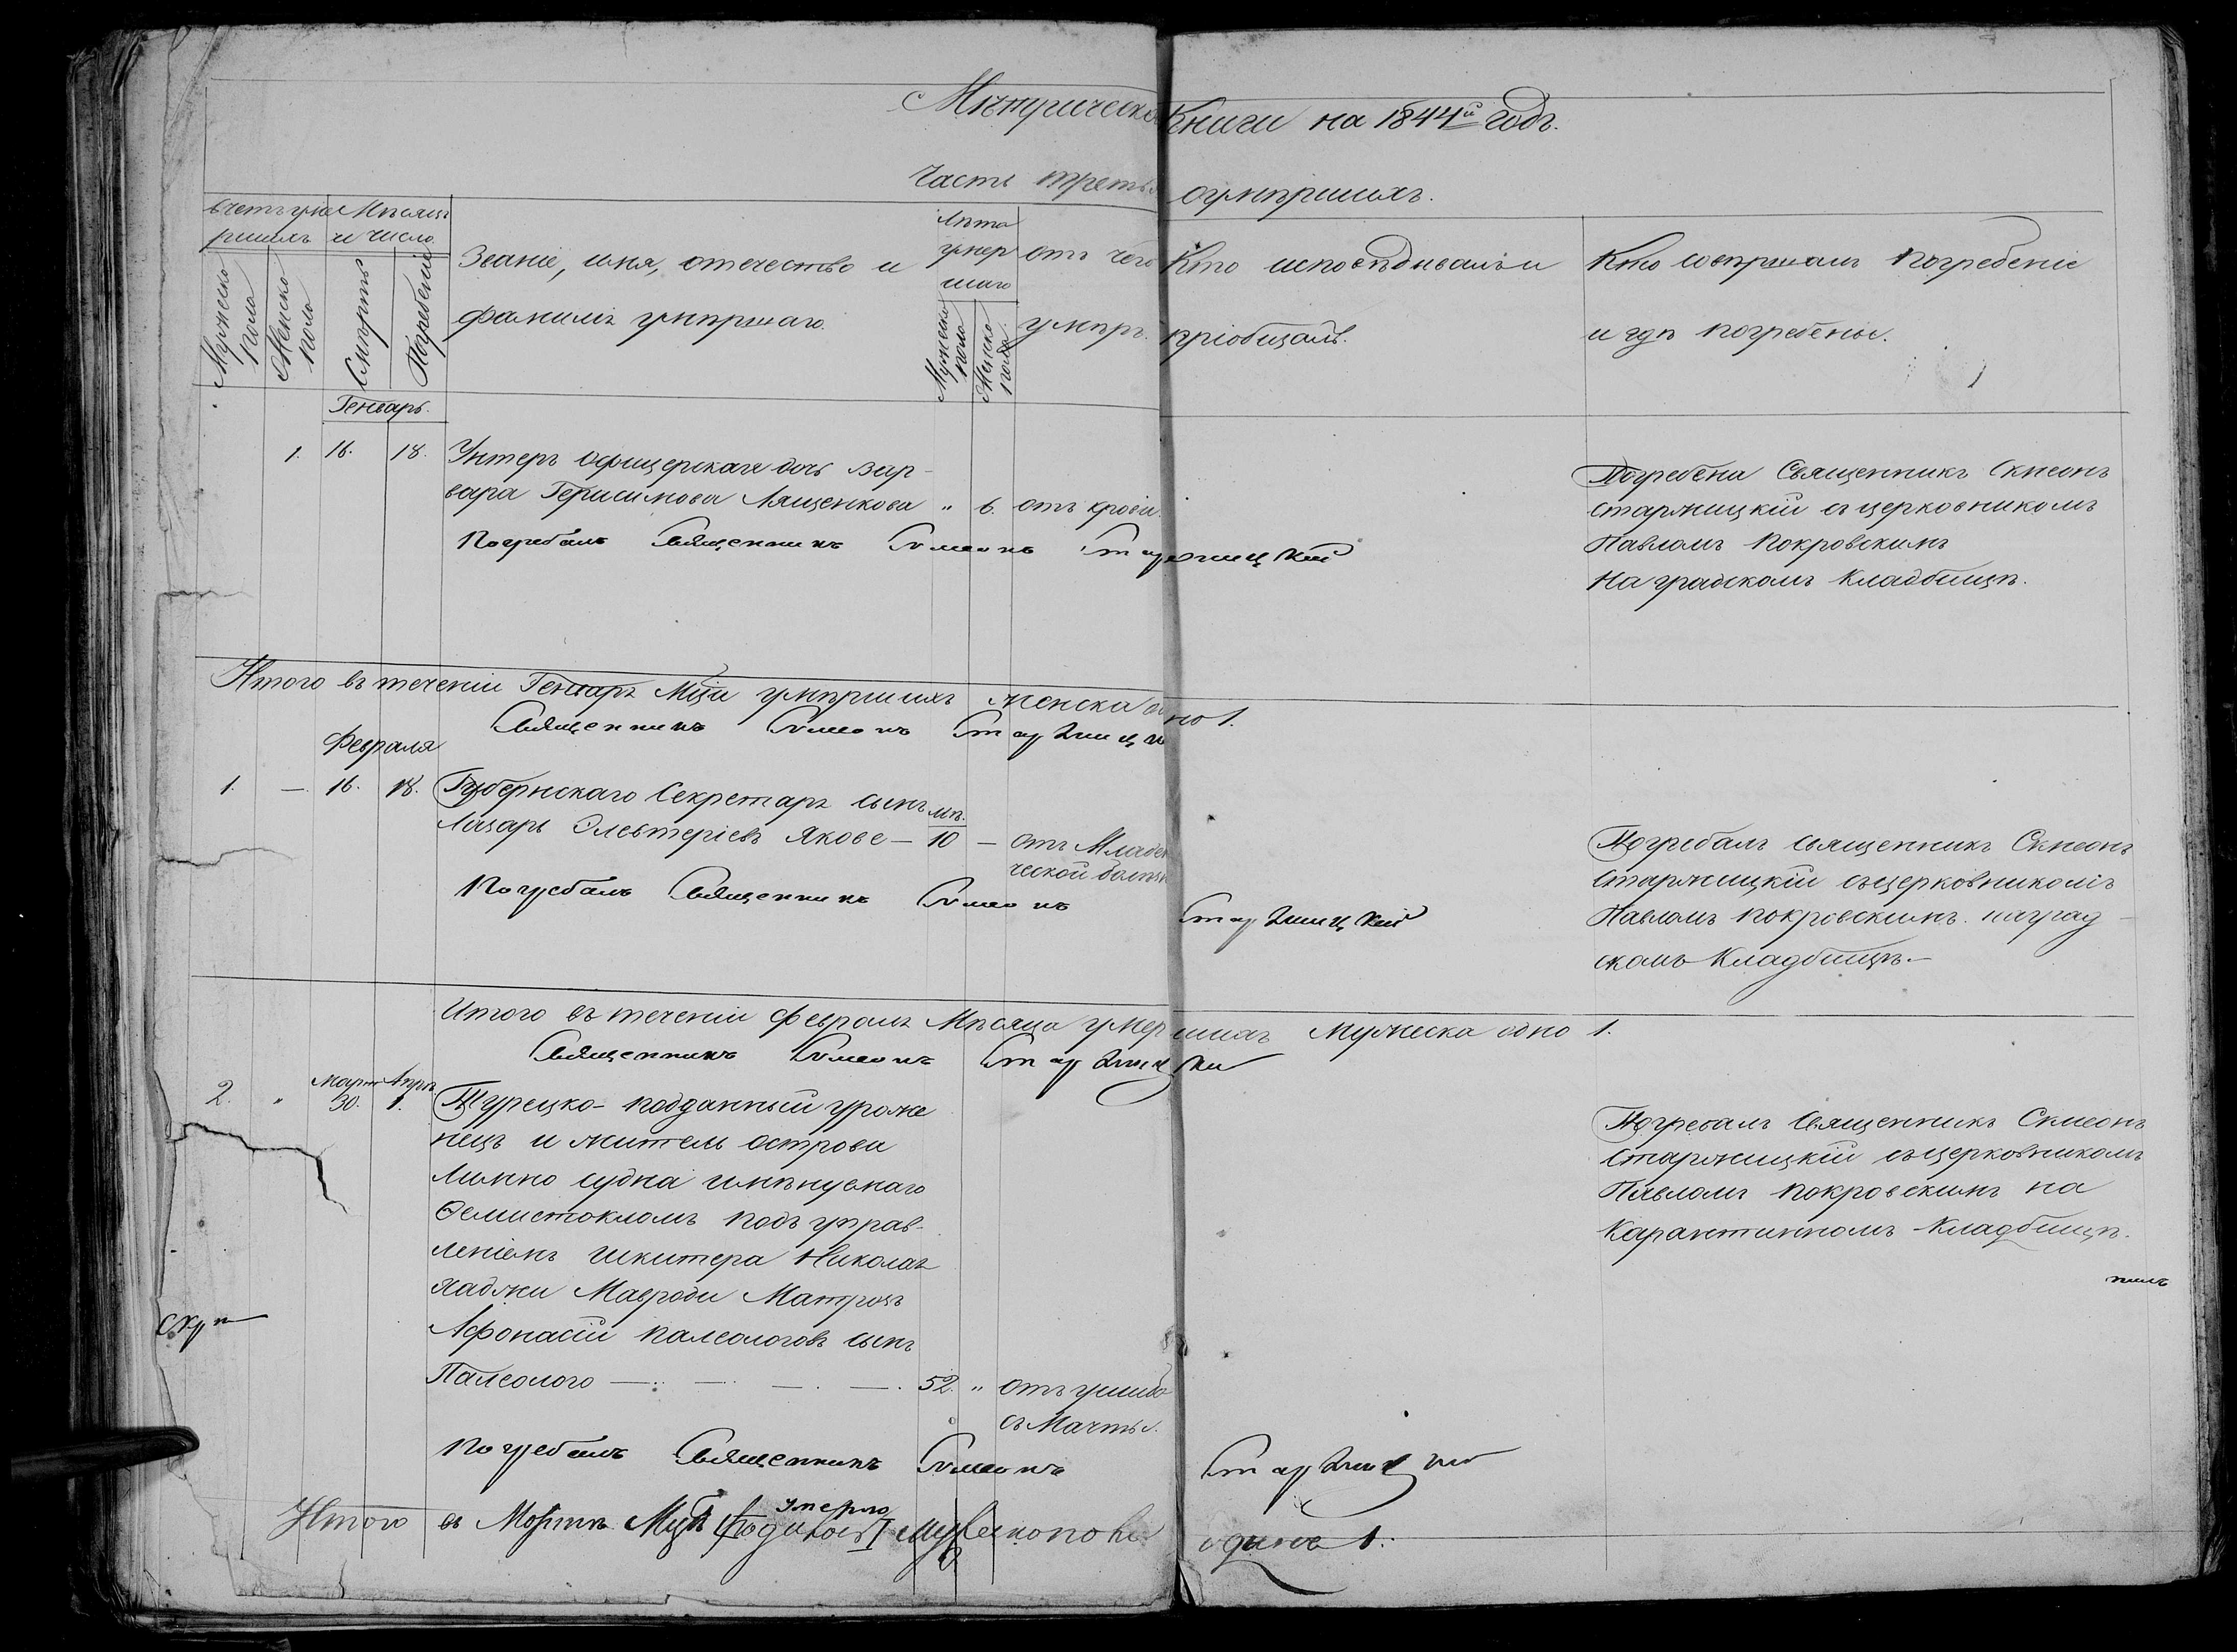 Метрической Книги на 1844й годъ.
Часть третья о умершихъ.
Счетъ уме Месяцъ
ршихъ и число.
Мужеска пола
Женска пола
Смерти
Погребенія
Званіе, имя, отечество и
фамилія умершаго.
Лета
умер
шаго
Мужеска пола
Женска пола
отъ чего
умеръ.
Кто исповедывалъ и
пріобщалъ.
Кто совершалъ погребеніе
и где погребены.
Генварь.
1. 16. 18. Унтеръ офицерская дочь Вар-
вара Герасимова Лященкова " 6. отъ крови.
Погребалъ Священникъ Симеонъ Старжицкій
Погребена Священникъ Симеонъ
Старжицкій съ церковникомъ
Павломъ Покровскимъ
На градскомъ Кладбище.
Итого въ теченіи Генваря Мца умершихъ женска одно 1.
Священникъ Симеонъ Старжицкій
Февраля
1. — 16. 18. Губернскаго Секретаря сынъ мц.
Лазарь Элевтеріевъ Якове — 10 — отъ Младен
ческой болезн
Погребалъ Священникъ Симеонъ Старжицкій
Погребалъ священникъ Симеонъ
Старжицкій съ церковникомъ
Павломъ Покровскимъ на град-
скомъ Кладбище.—
Итого въ теченіи Февраля Месяца умершихъ мужеска одно 1.
Священникъ Симеонъ Старжицкій
Март Апре
2. " 30. 1. Турецко-подданный уроже
нецъ и житель острова
Лимно судна именуемаго
Фемистокломъ подъ управ-
леніемъ шкипера Николая
Хаджи Мавроди Матрозъ
Афонасій Палеологовъ сынъ
Палеолого — — — — 52. " отъ ушиба
съ Мачты.
Погребалъ Священникъ Симеонъ Старжицкій
Погребалъ Священникъ Симеонъ
Старжицкій съ церковникомъ
Павломъ Покровскимъ на
Карантинномъ Кладбище.
скр
Итого въ Марте Мце умерло мужеска пола одинъ 1.